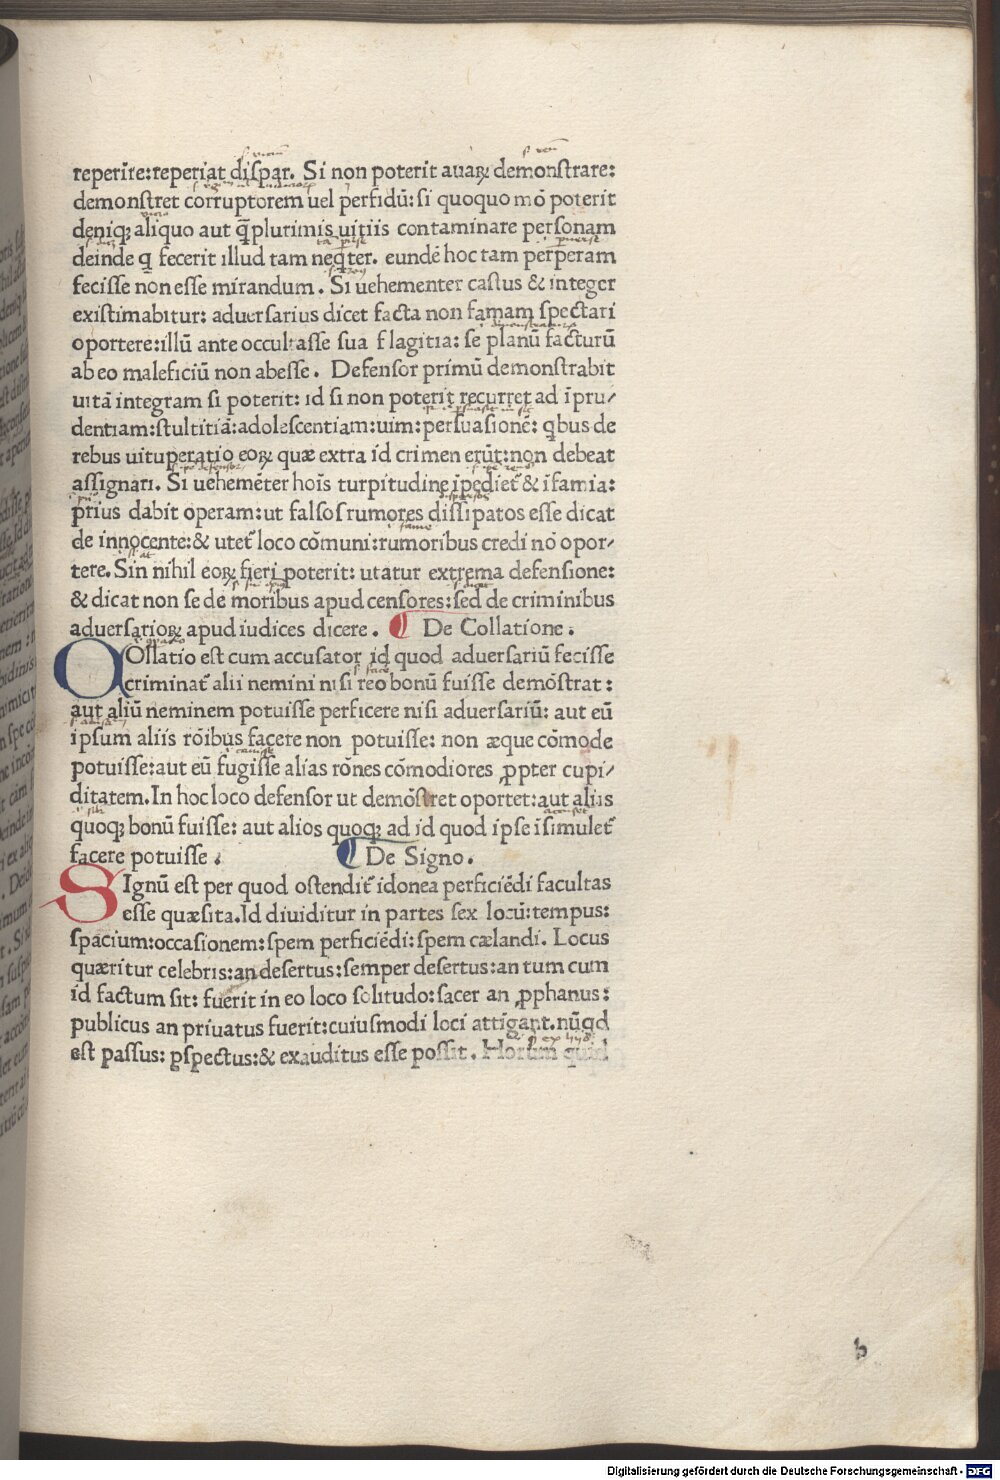 reperire:reperiat dispar. Si non poterit auaꝝ demonstrare:
demonstret corruptorem uel perfidū: si quoquo mō poterit
deniqꝫ aliquo aut q̄ plurimis uitiis contaminare personam
deinde q̄ fecerit illud tam neqter. eundē hoc tam perperam
fecisse non esse mirandum. Si uehementer castus & integer
existimabitur: aduersarius dicet facta non famam spectari
oportere:illū ante occultasse sua flagitia: se planū facturū
ab eo maleficiū non abesse. Defensor primū demonstrabit
uitā integram si poterit: id si non poterit recurret ad īpru/
dentiam:stultitiā:adolescentiam:uim:persuasionē: qbus de
rebus uituperatio eoꝝ quæ extra id crimen erūt:non debeat
assignari. Si uehemēter hoīs turpitudine īpediet᷑ & īfamia:
prius dabit operam:ut falsos rumores dissipatos esse dicat
de innocente:& utet᷑ loco cōmuni:rumoribus credi nō opor/
tere. Sin nihil eoꝝ fieri poterit: utatur extrema defensione:
& dicat non se de moribus apud censores:sed de criminibus
aduersarioꝝ apud iudices dicere. ¶ De Collatione.
COllatio est cum accusator id quod aduersariū fecisse
criminat᷑ alii nemini nisi reo bonū fuisse demōstrat:
aut aliū neminem potuisse perficere nisi aduersariū: aut eū
ipsum aliis rōibus facere non potuisse: non æque cōmode
potuisse:aut eū fugisse alias rōnes cōmodiores ꝓpter cupi/
ditatem. In hoc loco defensor ut demōstret oportet:aut aliis
quoqꝫ bonū fuisse: aut alios quoqꝫ ad id quod ipse īsimulet᷑
facere potuisse. ¶ De Signo.
SIgnū est per quod ostendit᷑ idonea perficiēdi facultas
esse quæsita. Id diuiditur in partes sex locū:tempus:
spacium:occasionem:spem perficiēdi:spem cælandi. Locus
quæritur celebris:an desertus:semper desertus:an tum cum
id factum sit: fuerit in eo loco solitudo:sacer an ꝓphanus:
publicus an priuatus fuerit:cuiusmodi loci attigant.nūqd
est passus: pspectus:& exauditus esse possit. Horum quid
b
Digitalisierung gefördert durch die Deutsche Forschungsgemeinschaft - DFG